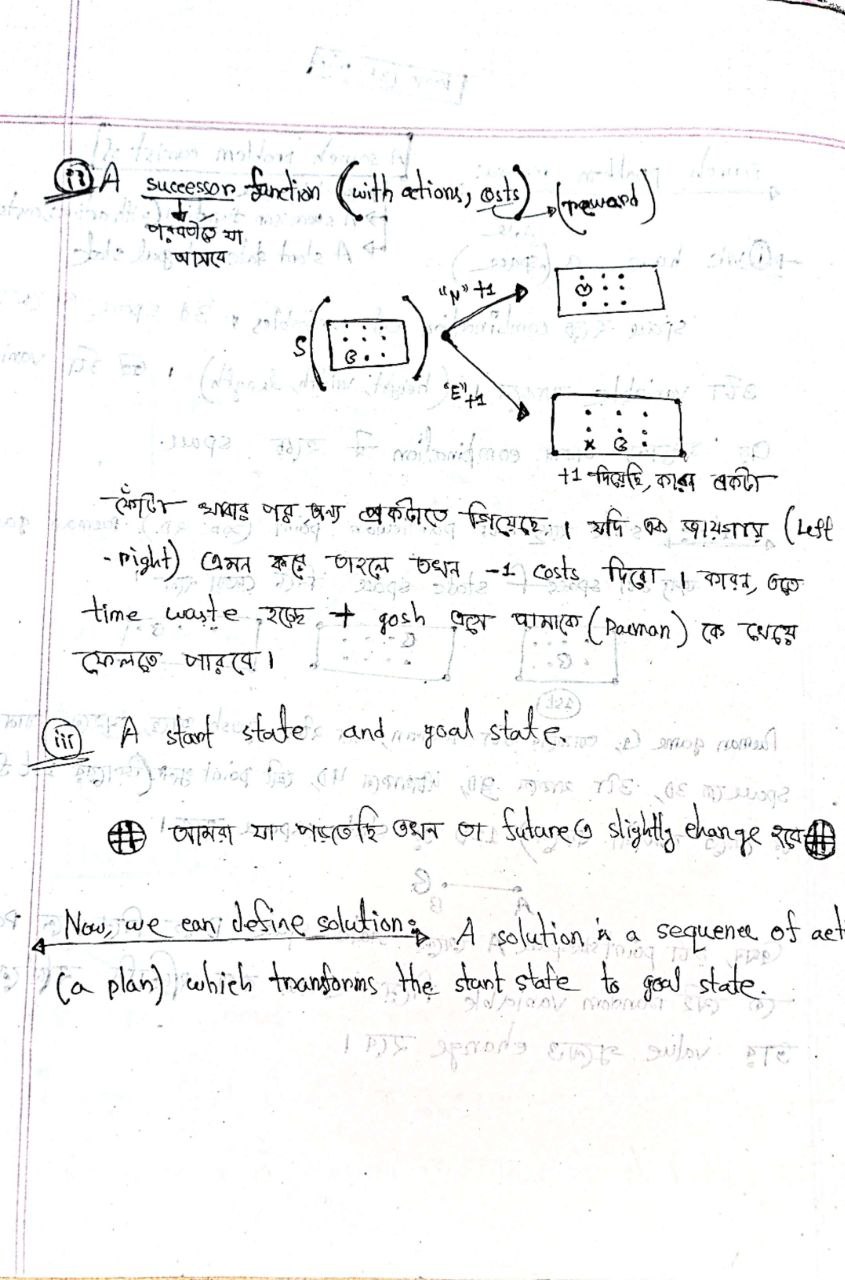 ii) A successor function (with actions, costs) → (reward)
পরবর্তীতে যা
আসবে
"N" +1
S
"E" +1
+1 দিয়েছি, কারন একটা
ফোঁটা খাবার পর অন্য একটাতে গিয়েছে। যদি এক জায়গায় (Left
-right) এমন করে তাহলে তখন -1 costs দিবো। কারন, এতে
time waste হচ্ছে + gosh এসে আমাকে (Pacman) কে খেয়ে
ফেলতে পারবে।
iii) A start state and goal state.
আমরা যা পড়তেছি এখন তা future এ slightly change হবে
Now, we can define solution: A solution is a sequence of act
(a plan) which transforms the start state to goal state.